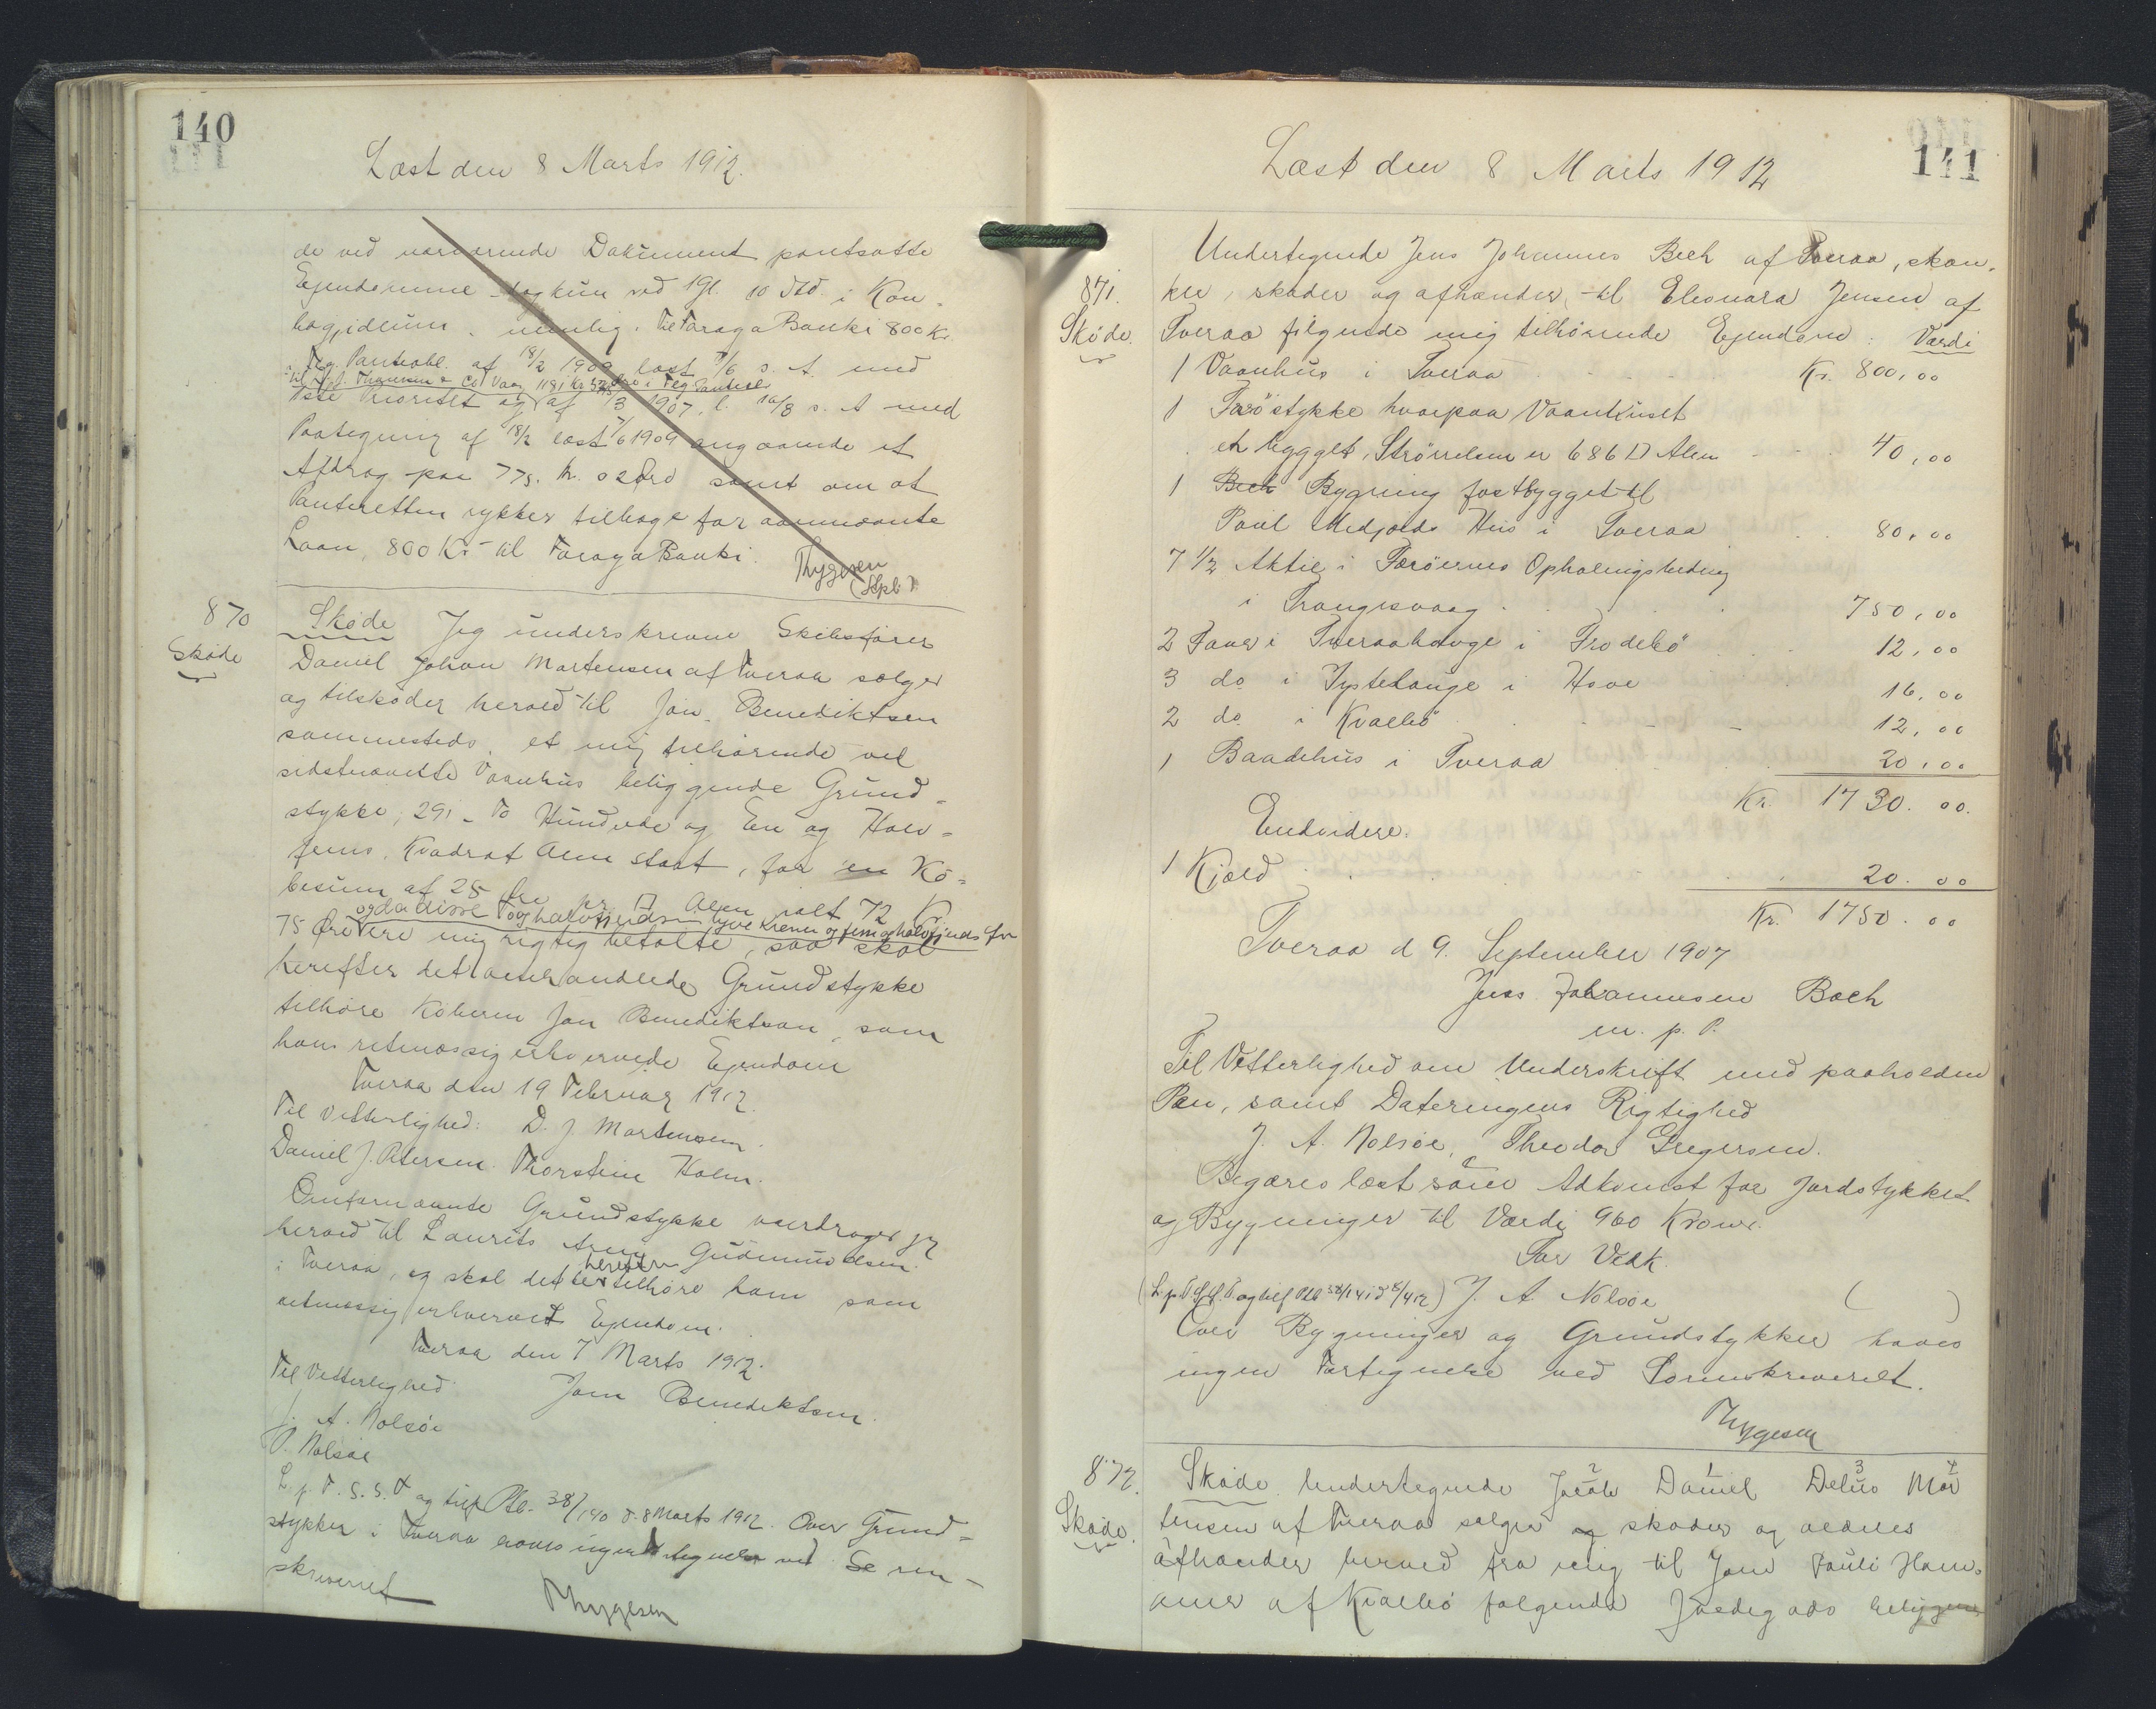 140
Læst den 8 Marts 1912.
de ved nærværende Dokument pantsatte
Ejendomme dog kun ved 1 Gl. 10 Std. i Kon-
hogjidium nemlig. Til Føroya Banki 800 Kr.
Flg. Panteobl. af 18/2 1909 læst 7/6 s. A. med
til Thomsen & Co Vaag 1181 Kr 52 Øre i Flg Panteobl
1ste Prioritet og af 1907, l. 10/8 s. A med
Paategning af 18/2 læst 7/6 1909 angaaende et
Afdrag paa 775. Kr. 02 Øre samt om at
Panteretten rykker tilbage for ovennævnte
Laan, 800 Kr til Føroya Banki.
Thygesen
870
Skøde
Skøde Jeg underskrevne Skibsfører
Daniel Johan Mortensen af Tveraa sælger
og tilskøder herved til Jon. Benediktsen
sammesteds, et mig tilhørende ved
sidstnævnte Vaanhus beliggende Grund-
stykke, 291 - To Hundrede og En og Halv-
fems, Kvadrat Alen stort, for en Kø-
besum af 25 Øre pr. □ Alen ialt 72 Kr
og da disse To og halvfjerdsindstyve Kroner og fem og halvfjerds Øre
75 Øre ere mig rigtig betalte, saa skal
herefter det omhandlede Grundstykke
tilhøre Køberen Jon Benediktsen, som
hans retmæssig erhvervede Ejendom
Tveraa den 19 Februar 1912.
Til Vitterlighed: D. J. Mortensen.
Daniel J. Petersen. Thorstein Holm.
Omfornævnte Grundstykke overdrager jeg
herved til Laurits Gudmundsen.
herefter
i Tveraa, og skal dette tilhøre ham som
retmæssig erhvervet Ejendom.
Tveraa den 7 Marts 1912.
Til Vitterlighed Jon Benediktsen.
J. A. Nolsöe
P. Nolsöe
L. p. F. S. S. T. og tilf Ptb. 38/140 d. 8 Marts 1912. Over Grund-
stykker i Tveraa haves ingen Fortegnelse ved Soren-
skriveriet
Thygesen
141
Læst den 8 Marts 1912
871.
Skøde.
Undertegnede Jens Johannes Bech af Tveraa, skøn-
ker, skøder og afhænder, til Eleonora Jensen af
Tveraa følgende mig tilhørende Ejendom: Værdi
1 Vaanhus i Tveraa Kr. 800,00
1 Trøstykke hvorpaa Vaanhuset
er bygget, Størrelsen er 686 □ Alen 40,00
1 Bech Bygning fastbygget til
Poul Midjords Hus i Tveraa 80,00
7 1/2 Aktie i Færöernes Ophalingsbeding
i Trangisvaag 750,00
2 Faar i Tveraahauge i Frodebö 12,00
3 do i Hauge i Hove 16,00
2 do i Kvalbö 12,00
1 Baadehus i Tveraa 20,00
Kr. 1730.00.
Endvidere.
1 Kjæld 20.00
Kr. 1750.00
Tveraa d 9. September 1907
Jens Johannesen Bech
m. p. P.
Til Vitterlighed om Underskrift med paaholden
Pen, samt Dateringens Rigtighed
J. A. Nolsöe, Theodor Gregersen.
Begæres læst som Adkomst for Jordstykket
og Bygninger til Værdi 960 Kroner.
For Vedk.
(L. p. F. S. S. T. og tilf Ptb 38/141 d 8/4 12) J. A. Nolsöe ( )
Over Bygninger og Grundstykker haves
ingen Fortegnelse ved Sorenskriveriet.
Thygesen
872.
Skøde.
2 1 3 4
Skøde. Undertegnede Jacob Daniel Delius Mor
tensen af Tveraa sælger og skøder og aldeles
afhænder herved fra mig til Jon Pauli Ham-
mer af Kvalbö følgende Jordegods beliggende